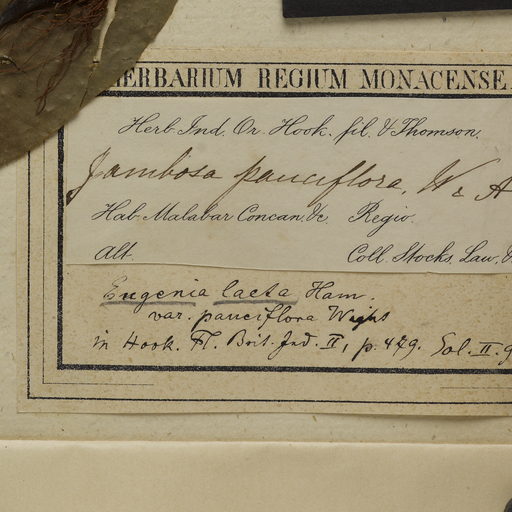 HERBARIUM REGIUM MONACENSE.
Herb. Ind. Or. Hook. fil. & Thomson.
Jambosa pauciflora, W & A
Hab. Malabar Concan &c. Regio.
Alt. Coll. Stocks, Law, &
Eugenia laeta Ham.
var. pauciflora Wight
in Hook. Fl. Brit. Ind. II, p. 479. Sol. II. 9